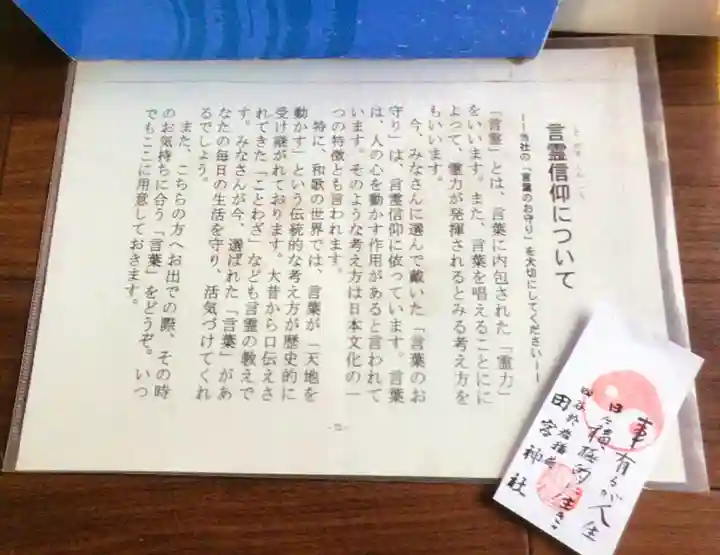 ことだましんこう
言霊信仰について
――当社の「言葉のお守り」を大切にしてください――
「言霊」とは、言葉に内包された「霊力」
をいいます。また、言葉を唱えることにに
よって、霊力が発揮されるとみる考え方を
もいいます。
今、みなさんに選んで戴いた「言葉のお
守り」は、言霊信仰に依っています。言葉
は、人の心を動かす作用があると言われて
います。そのような考え方は日本文化の一
つの特徴とも言われます。
特に、和歌の世界では、言葉が「天地を
動かす」という伝統的な考え方が歴史的に
受け継がれております。大昔から口伝えさ
れてきた「ことわざ」なども言霊の教えで
す。みなさんが今、選ばれた「言葉」があ
なたの毎日の生活を守り、活気づけてくれ
るでしょう。
また、こちらの方へお出での際、その時
のお気持ちに合う「言葉」をどうぞ。いつ
でもここに用意しておきます。
事有るが人生
日々積極的に生き
田宮神社